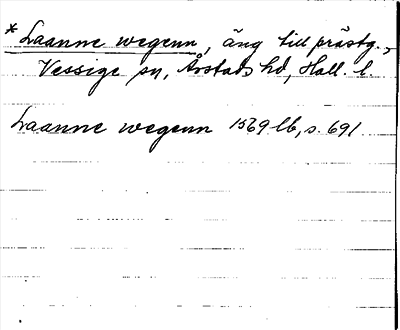 * Laanne wegenn, äng till prästg.,
Vessige sn, Årstads hd, Hall. l.
Laanne wegenn 1569 lb, s. 691